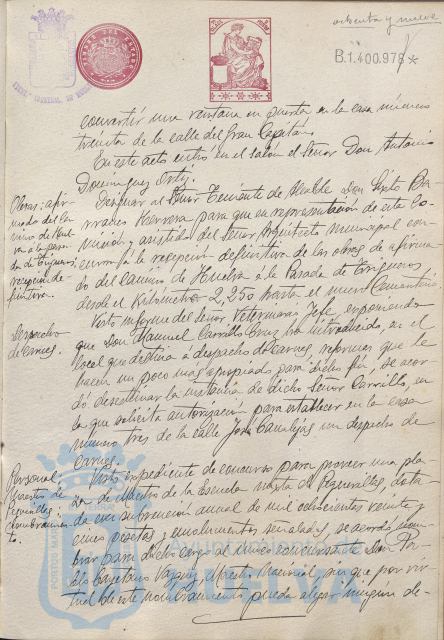 ochenta y nueve
B.1.400.978*
TIMBRE DEL ESTADO
convertir una ventana en puerta en la casa número
treinta de la calle del Gran Capitán.
En este acto entró en el salón el Señor Don Antonio
Domínguez Ortiz.
Obras: afir-
mado del Ca-
mino de Huel-
va á la para-
da de Trigueros.
recepción de-
finitiva.
Designar al Señor Teniente de Alcalde Don Sixto Ba-
rradés Herrera para que en representación de esta Co-
misión y asistido del Señor Arquitecto municipal con-
curra á la recepción definitiva de las obras de afirma-
do del camino de Huelva á la Parada de Trigueros
desde el Kilómetro 2,250 hasta el nuevo Cementerio.
Despacho
de carnes.
Visto informe del Señor Veterinario Jefe, exponiendo
que Don Manuel Carrillo Cruz ha introducido en el
local que destina á despacho de carnes, reformas que le
hacen un poco más apropiado para dicho fin, se acor-
dó desestimar la instancia de dicho Señor Carrillo, en
la que solicita autorización para establecer en la casa
número tres de la calle José Canalejas un despacho de
carnes.
Personal
Maestro de
Peguerillas,
nombramien-
to.
Visto expediente de concurso para proveer una pla-
za de Maestro de la Escuela mixta de Peguerillas, dota-
da con subvención anual de mil ochocientas veinte y
cinco pesetas y emolumentos señalados, se acordó nom-
brar para dicho cargo al único concursante Don Pe-
dro Cayetano Vazquez, Maestro Nacional, sin que por vir-
tud de este nombramiento pueda alegar ningún de-
Ayuntamiento de
HUELVA